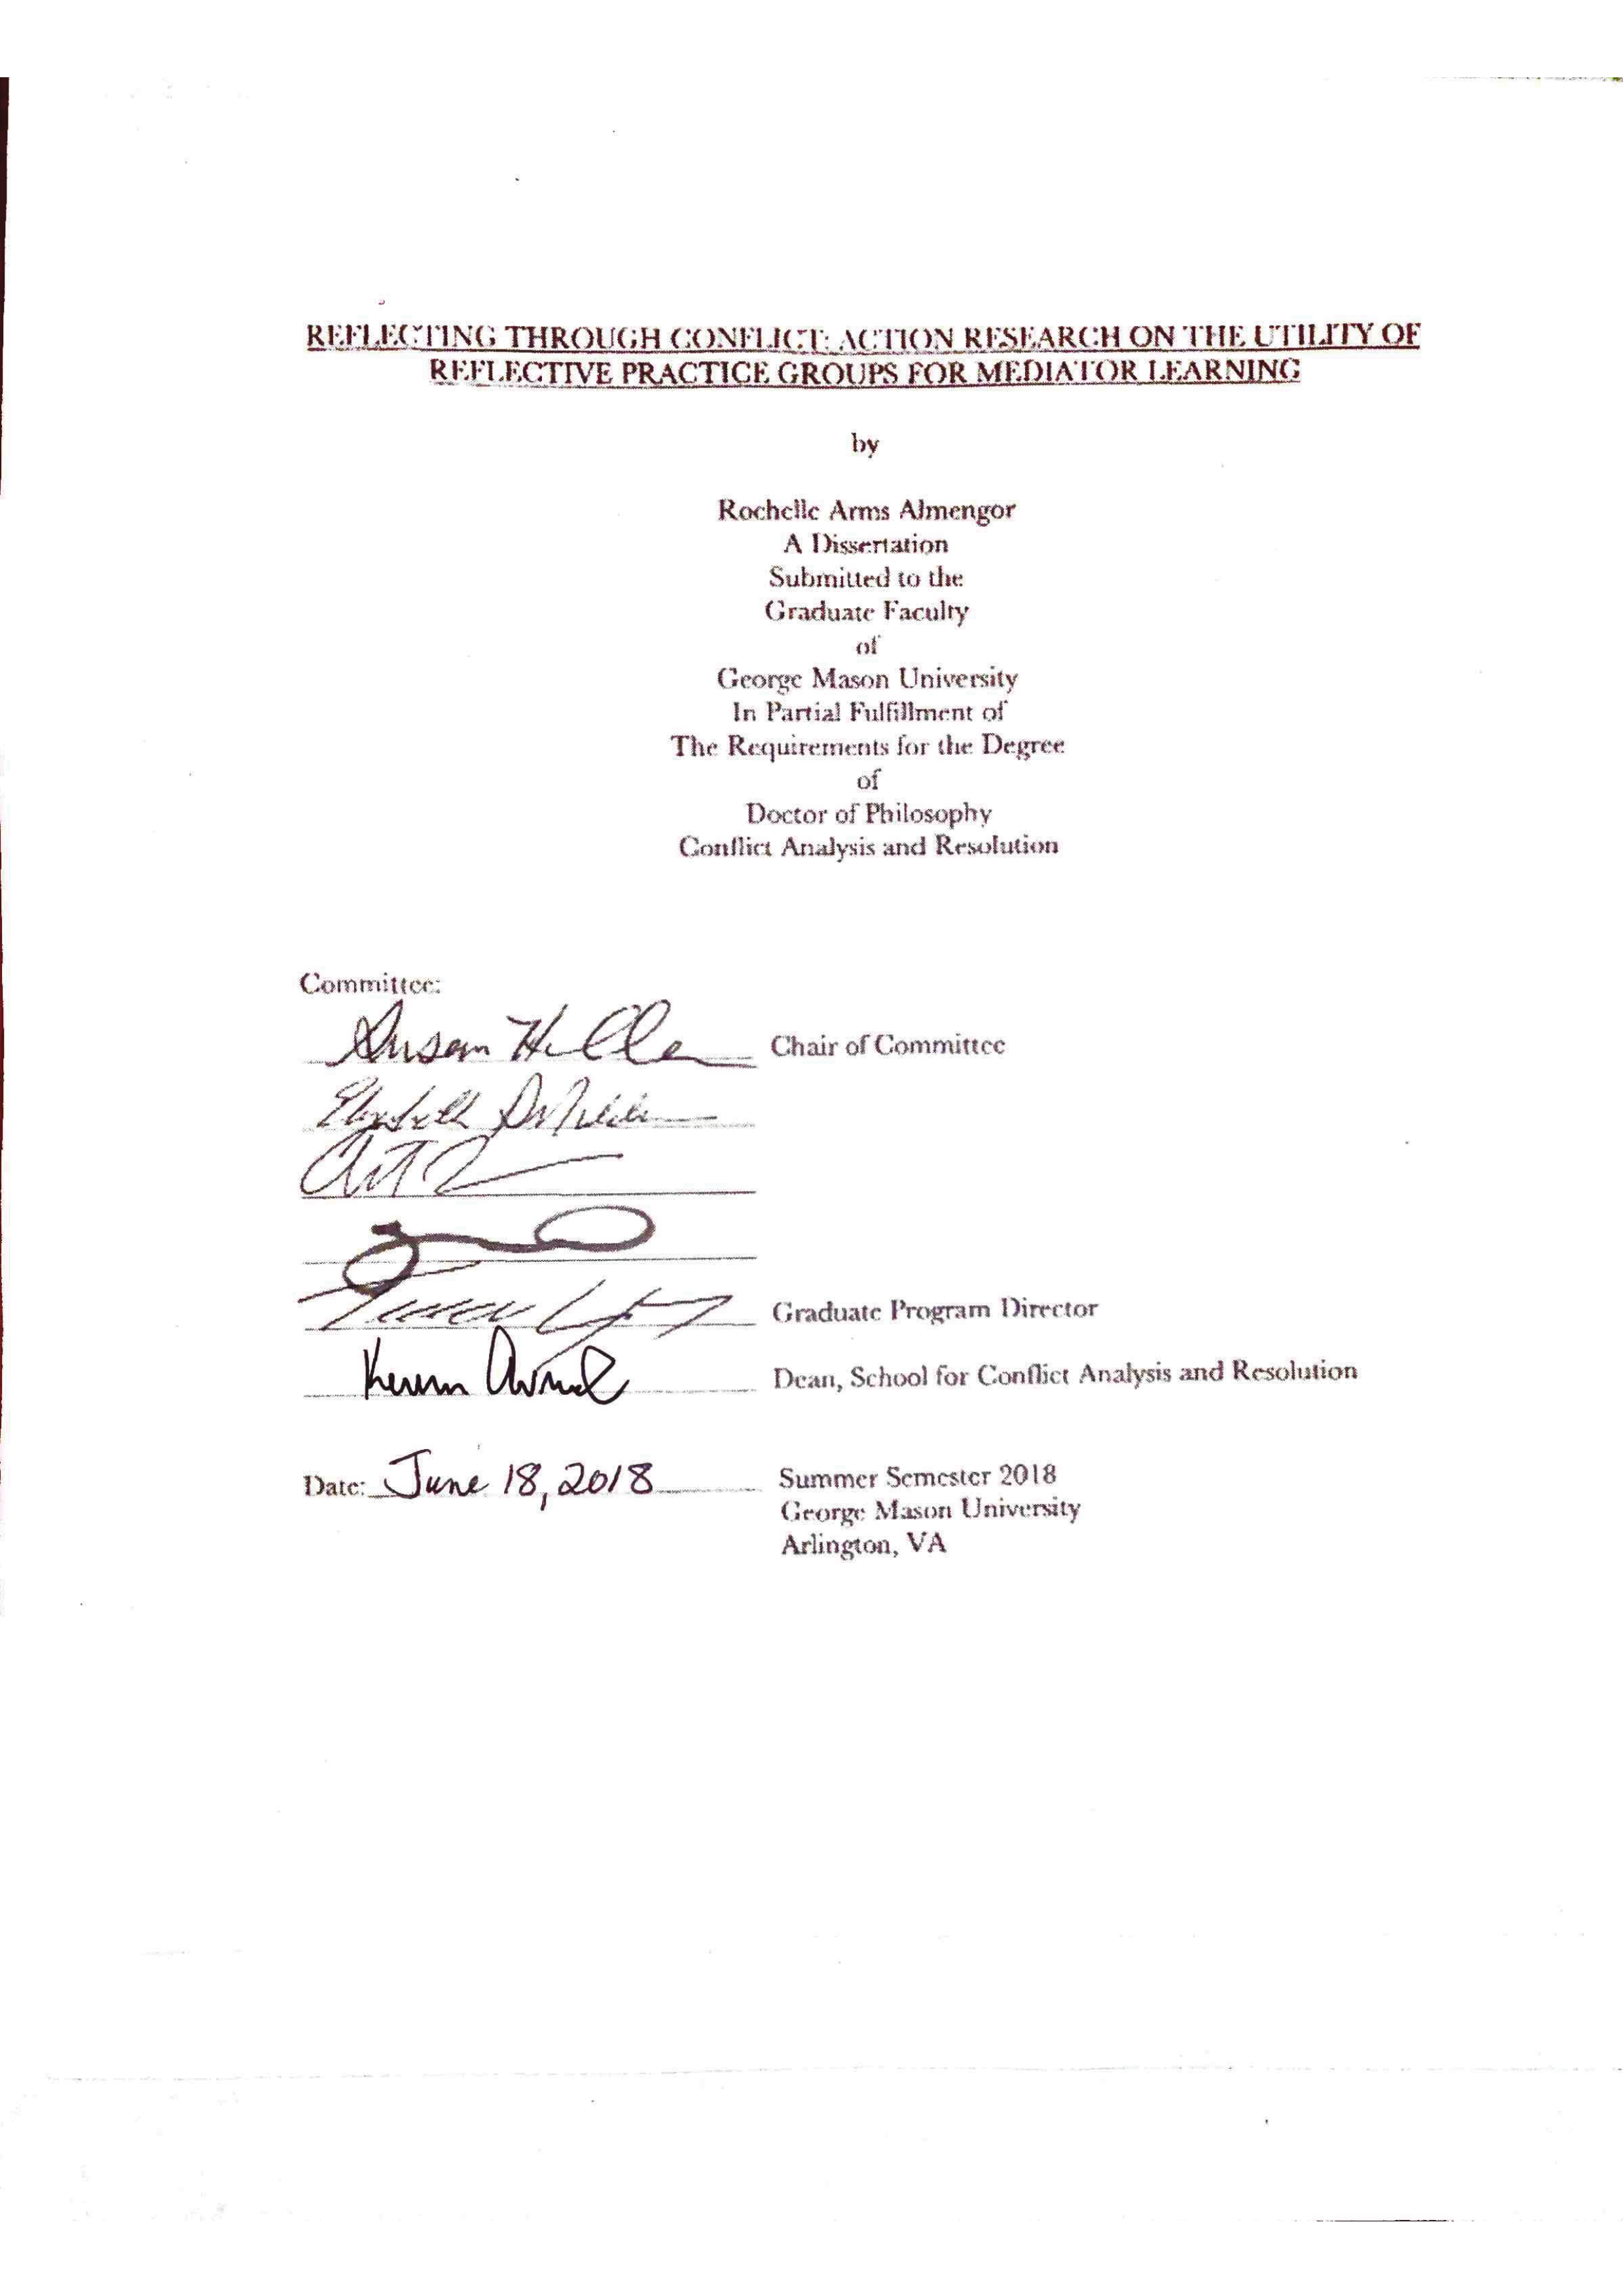 REFLECTING THROUGH CONFLICT: ACTION RESEARCH ON THE UTILITY OF
REFLECTIVE PRACTICE GROUPS FOR MEDIATOR LEARNING
by
Rochelle Arms Almengor
A Dissertation
Submitted to the
Graduate Faculty
of
George Mason University
In Partial Fulfillment of
The Requirements for the Degree
of
Doctor of Philosophy
Conflict Analysis and Resolution
Committee:
Susan Chair of Committee
Graduate Program Director
Dean, School for Conflict Analysis and Resolution
Date: June 18, 2018 Summer Semester 2018
George Mason University
Arlington, VA